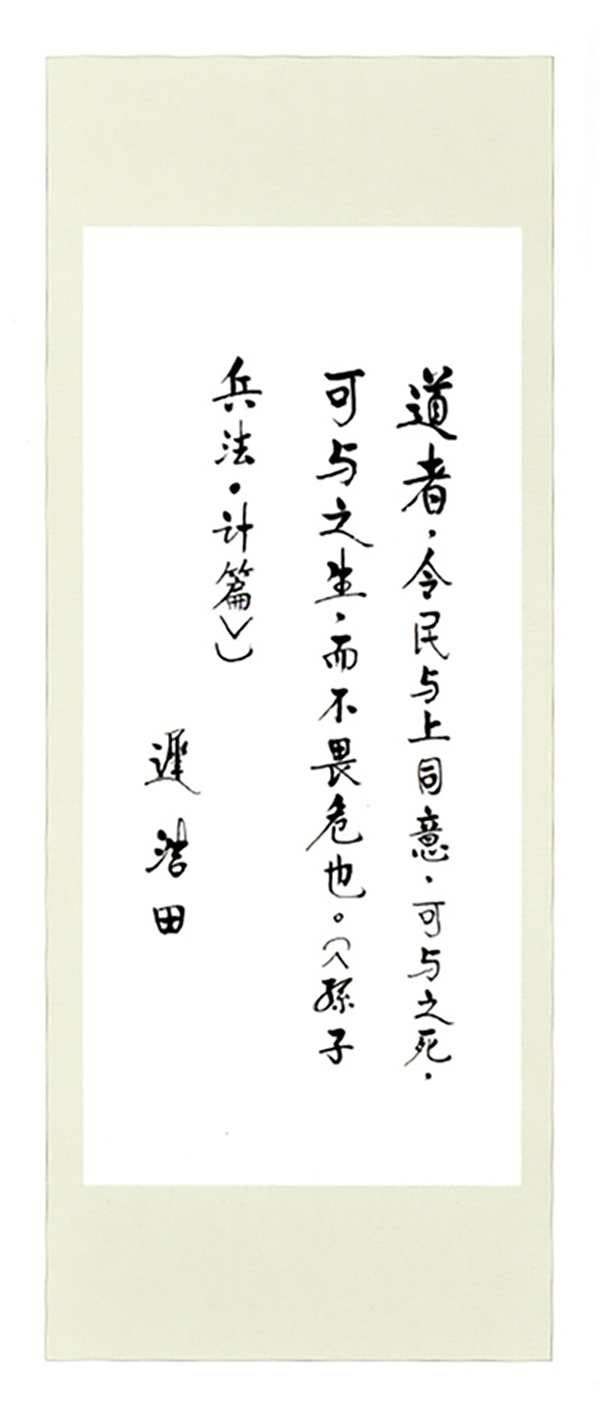 道者，令民与上同意，可与之死，
可与之生，而不畏危也。（《孫子
兵法·计篇》）
遲浩田